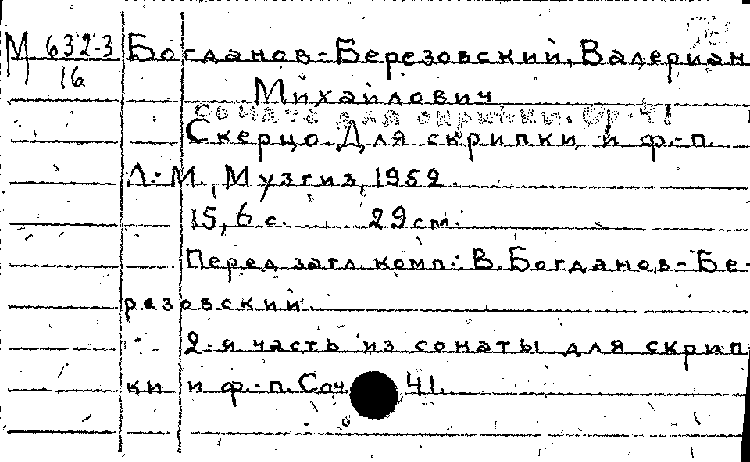 М 632-3 Богданов-Березовский, Валериан
16
Михайлович
Соната для скрипки. Ор. 41
Скерцо. Для скрипки и ф.-п.
Л.-М., Музгиз, 1952.
15, 6 с. 29 см.
Перед загл. комп.: В. Богданов-Бе-
резовский.
2-я часть из сонаты для скрип-
ки и ф.-п. Соч. 41.